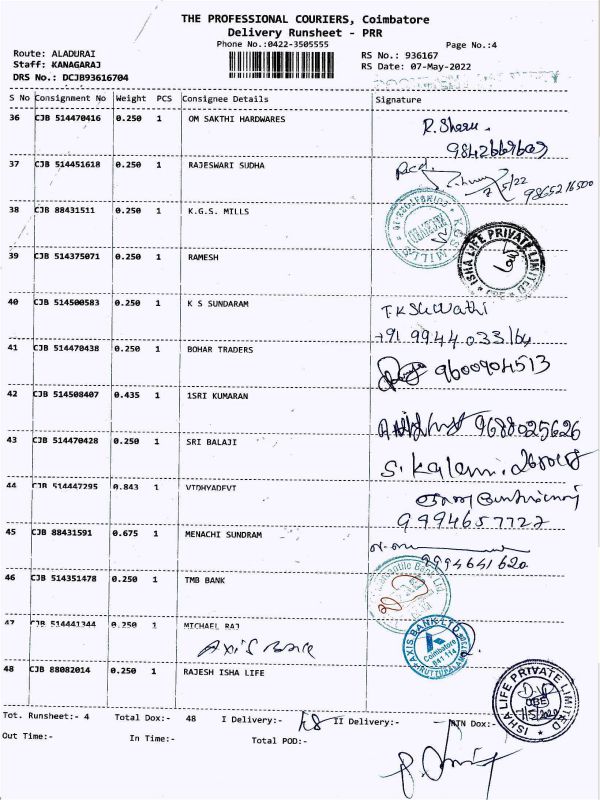 THE PROFESSIONAL COURIERS, Coimbatore
Delivery Runsheet - PRR
Phone No.:0422-3505555
Page No.:4
Route: ALADURAI
Staff: KANAGARAJ
DRS No.: DCJB93616704
RS No.: 936167
RS Date: 07-May-2022
S No Consignment No Weight PCS Consignee Details Signature
36 CJB 514470416 0.250 1 OM SAKTHI HARDWARES
37 CJB 514451618 0.250 1 RAJESWARI SUDHA
9865216500
38 CJB 88431511 0.250 1 K.G.S. MILLS
K.G.S. MILLS
39 CJB 514375071 0.250 1 RAMESH
ISHA LIFE PRIVATE LIMITED
CBE
40 CJB 514500583 0.250 1 K S SUNDARAM
+91 9944 033164
41 CJB 514470438 0.250 1 BOHAR TRADERS
9600904513
42 CJB 514508407 0.435 1 1SRI KUMARAN
9688025626
43 CJB 514470428 0.250 1 SRI BALAJI
44 CJB 514447295 0.843 1 VIDHYADEVI
9994657722
45 CJB 88431591 0.675 1 MENACHI SUNDRAM
9994641620
46 CJB 514351478 0.250 1 TMB BANK
Mercantile Bank Ltd
47 CJB 514441344 0.250 1 MICHAEL RAJ
Axis Bank
AXIS BANK LTD
Coimbatore
641 114
48 CJB 88082014 0.250 1 RAJESH ISHA LIFE
ISHA LIFE PRIVATE LIMITED
CBE
Tot. Runsheet:- 4 Total Dox:- 48 I Delivery:- 48 II Delivery:- RTN Dox:-
Out Time:- In Time:- Total POD:-